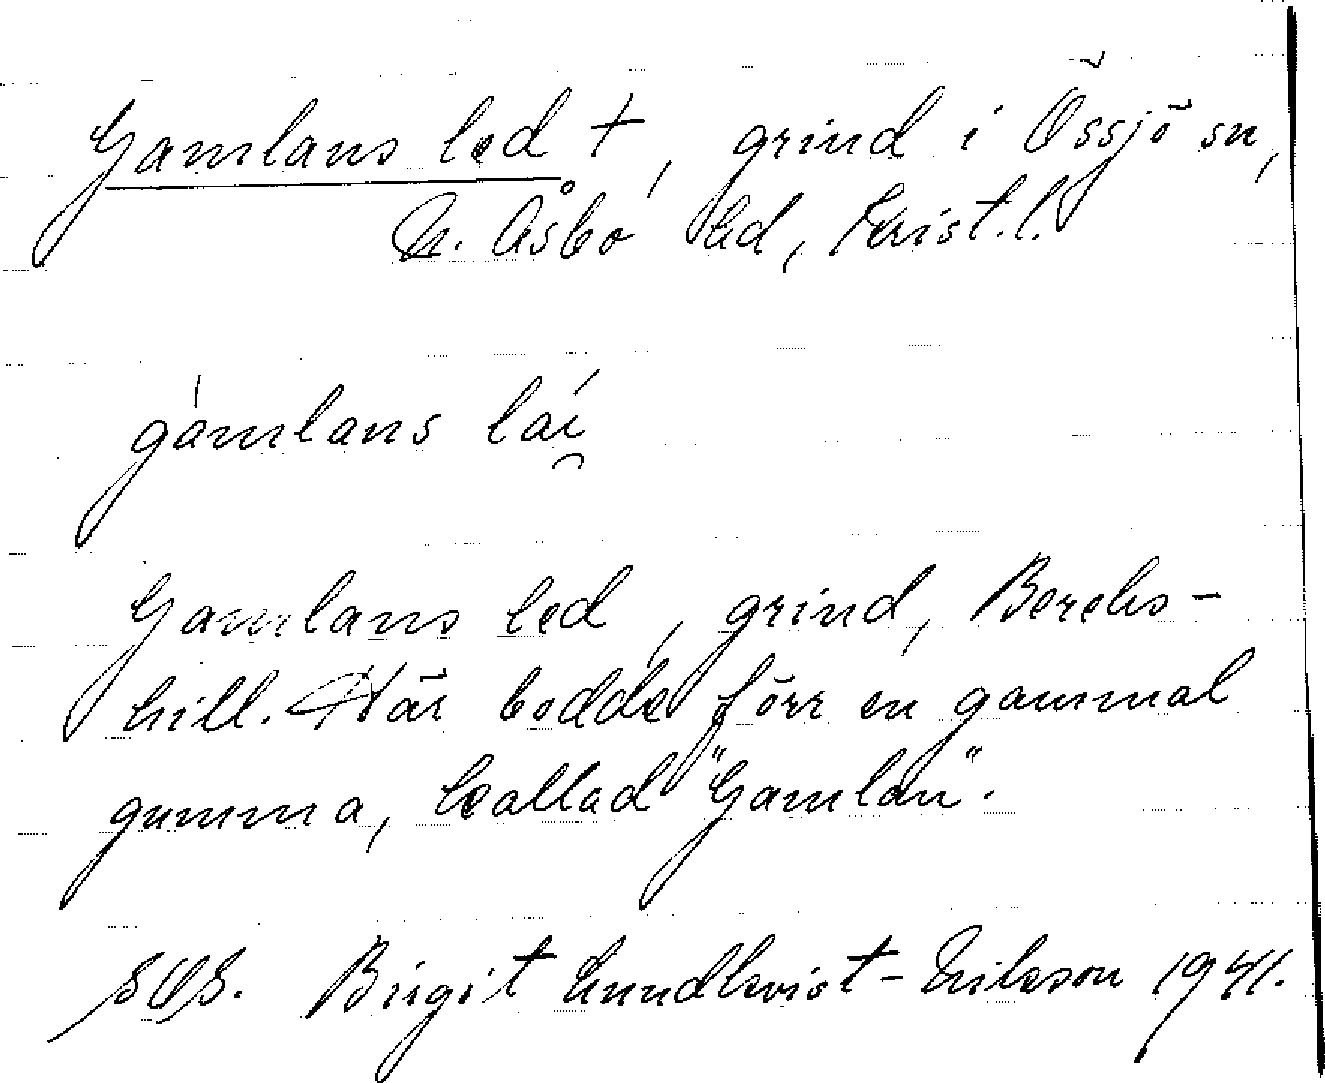 Gamlans led †, grind i Össjö sn,
N. Åsbo hd, Krist. l.
gamlans lai
Gamlans led, grind, Bereks-
hill. Här bodde förr en gammal
gumma, kallad "Gamlan".
Birgit Lundkvist-Nilsson 1941.